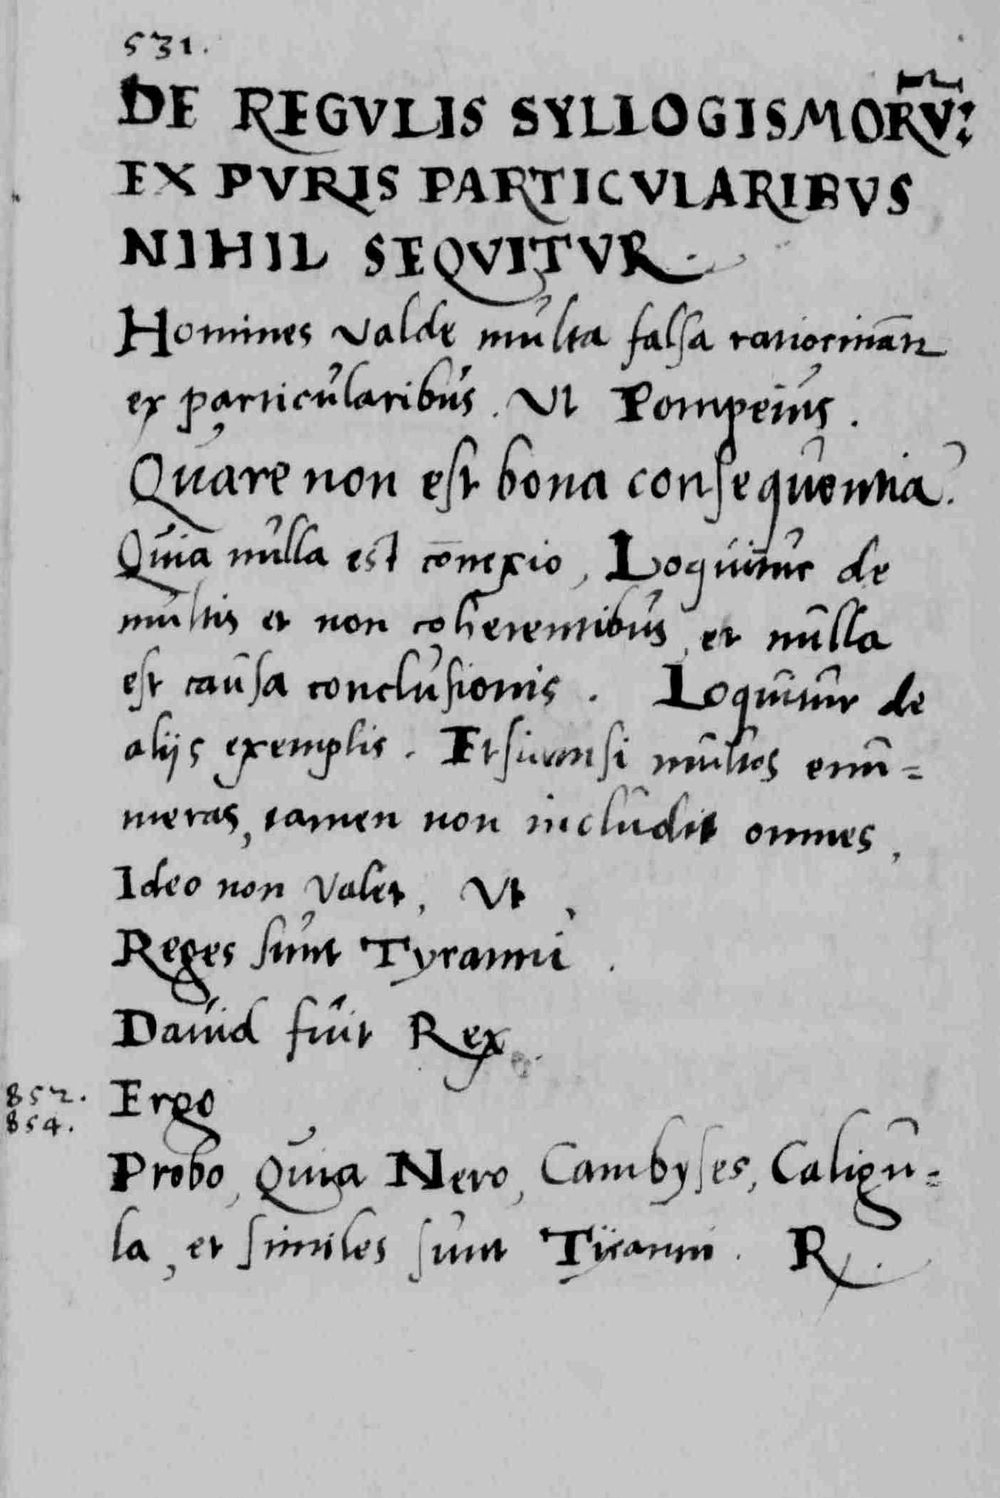 531.
DE REGVLIS SYLLOGISMORV̄:
EX PVRIS PARTICVLARIBVS
NIHIL SEQVITVR.
Homines valde multa falsa ratiocinātr
ex particularibus. Ut Pompeius.
Quare non est bona consequentia?
Quia nulla est cōnexio, Loquitur de
multis et non coherentibus, et nulla
est causa conclusionis. Loquitur de
alijs exemplis. Etsi multos enu=
meras, tamen non includit omnes,
Ideo non valet, Ut,
Reges sunt Tyranni.
Dauid fuit Rex.
852. Ergo
854.
Probo, Quia Nero, Cambyses, Caligu=
la, et similes sunt Tÿranni. R.